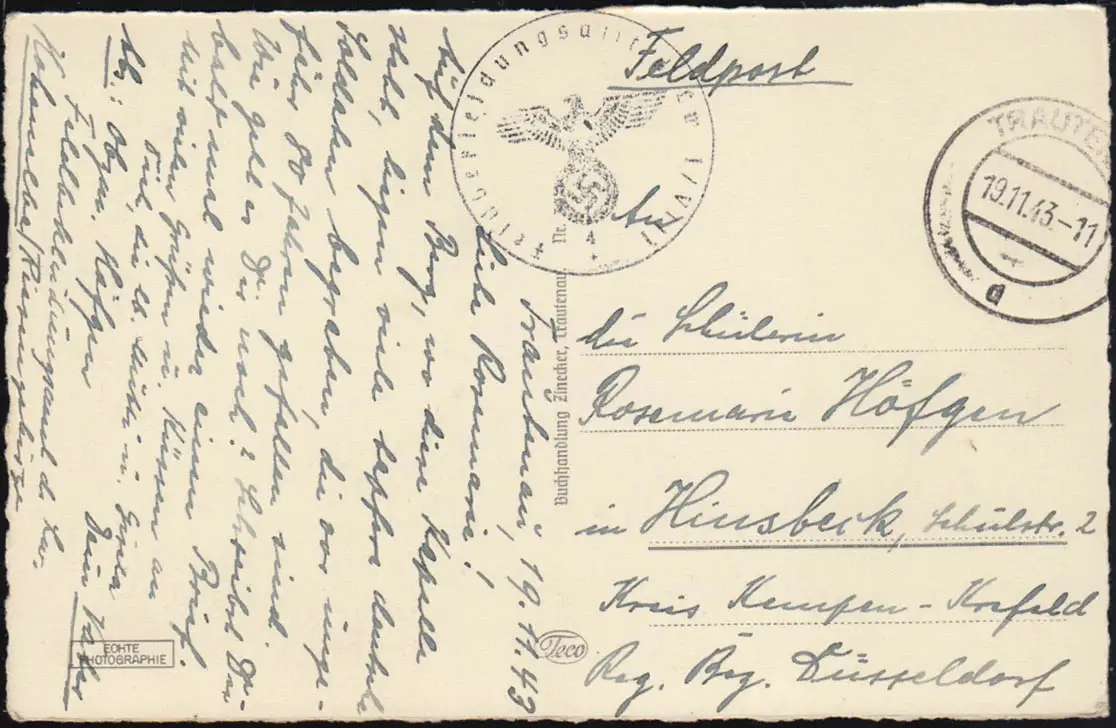 Feldpost
TRAUTEN
19.11.43.-11
d
Nr. 4
An
die Schülerin
Rosemarie Höfgen
in Hinsbeck, Schulstr. 2
Kreis Kempen-Krefeld
Reg. Bez. Düsseldorf
Buchhandlung Zinecker, Trautenau
Teco
ECHTE
PHOTOGRAPHIE
Trautenau, 19.11.43
Liebe Rosemarie!
Auf dem Berg, wo diese Kapelle
steht, liegen viele tapfere deutsche
Soldaten begraben, die vor unge-
fähr 80 Jahren gefallen sind.
Wie geht es Dir noch? Schreibst Du
bald mal wieder einen Brief.
Mit vielen Grüßen u. Küssen an
Dich, die lb. Mutti u.
Dein Vater
Höfgen
Feldbekleidungsamt d. Lw.
Hohenelbe/Riesengebirge